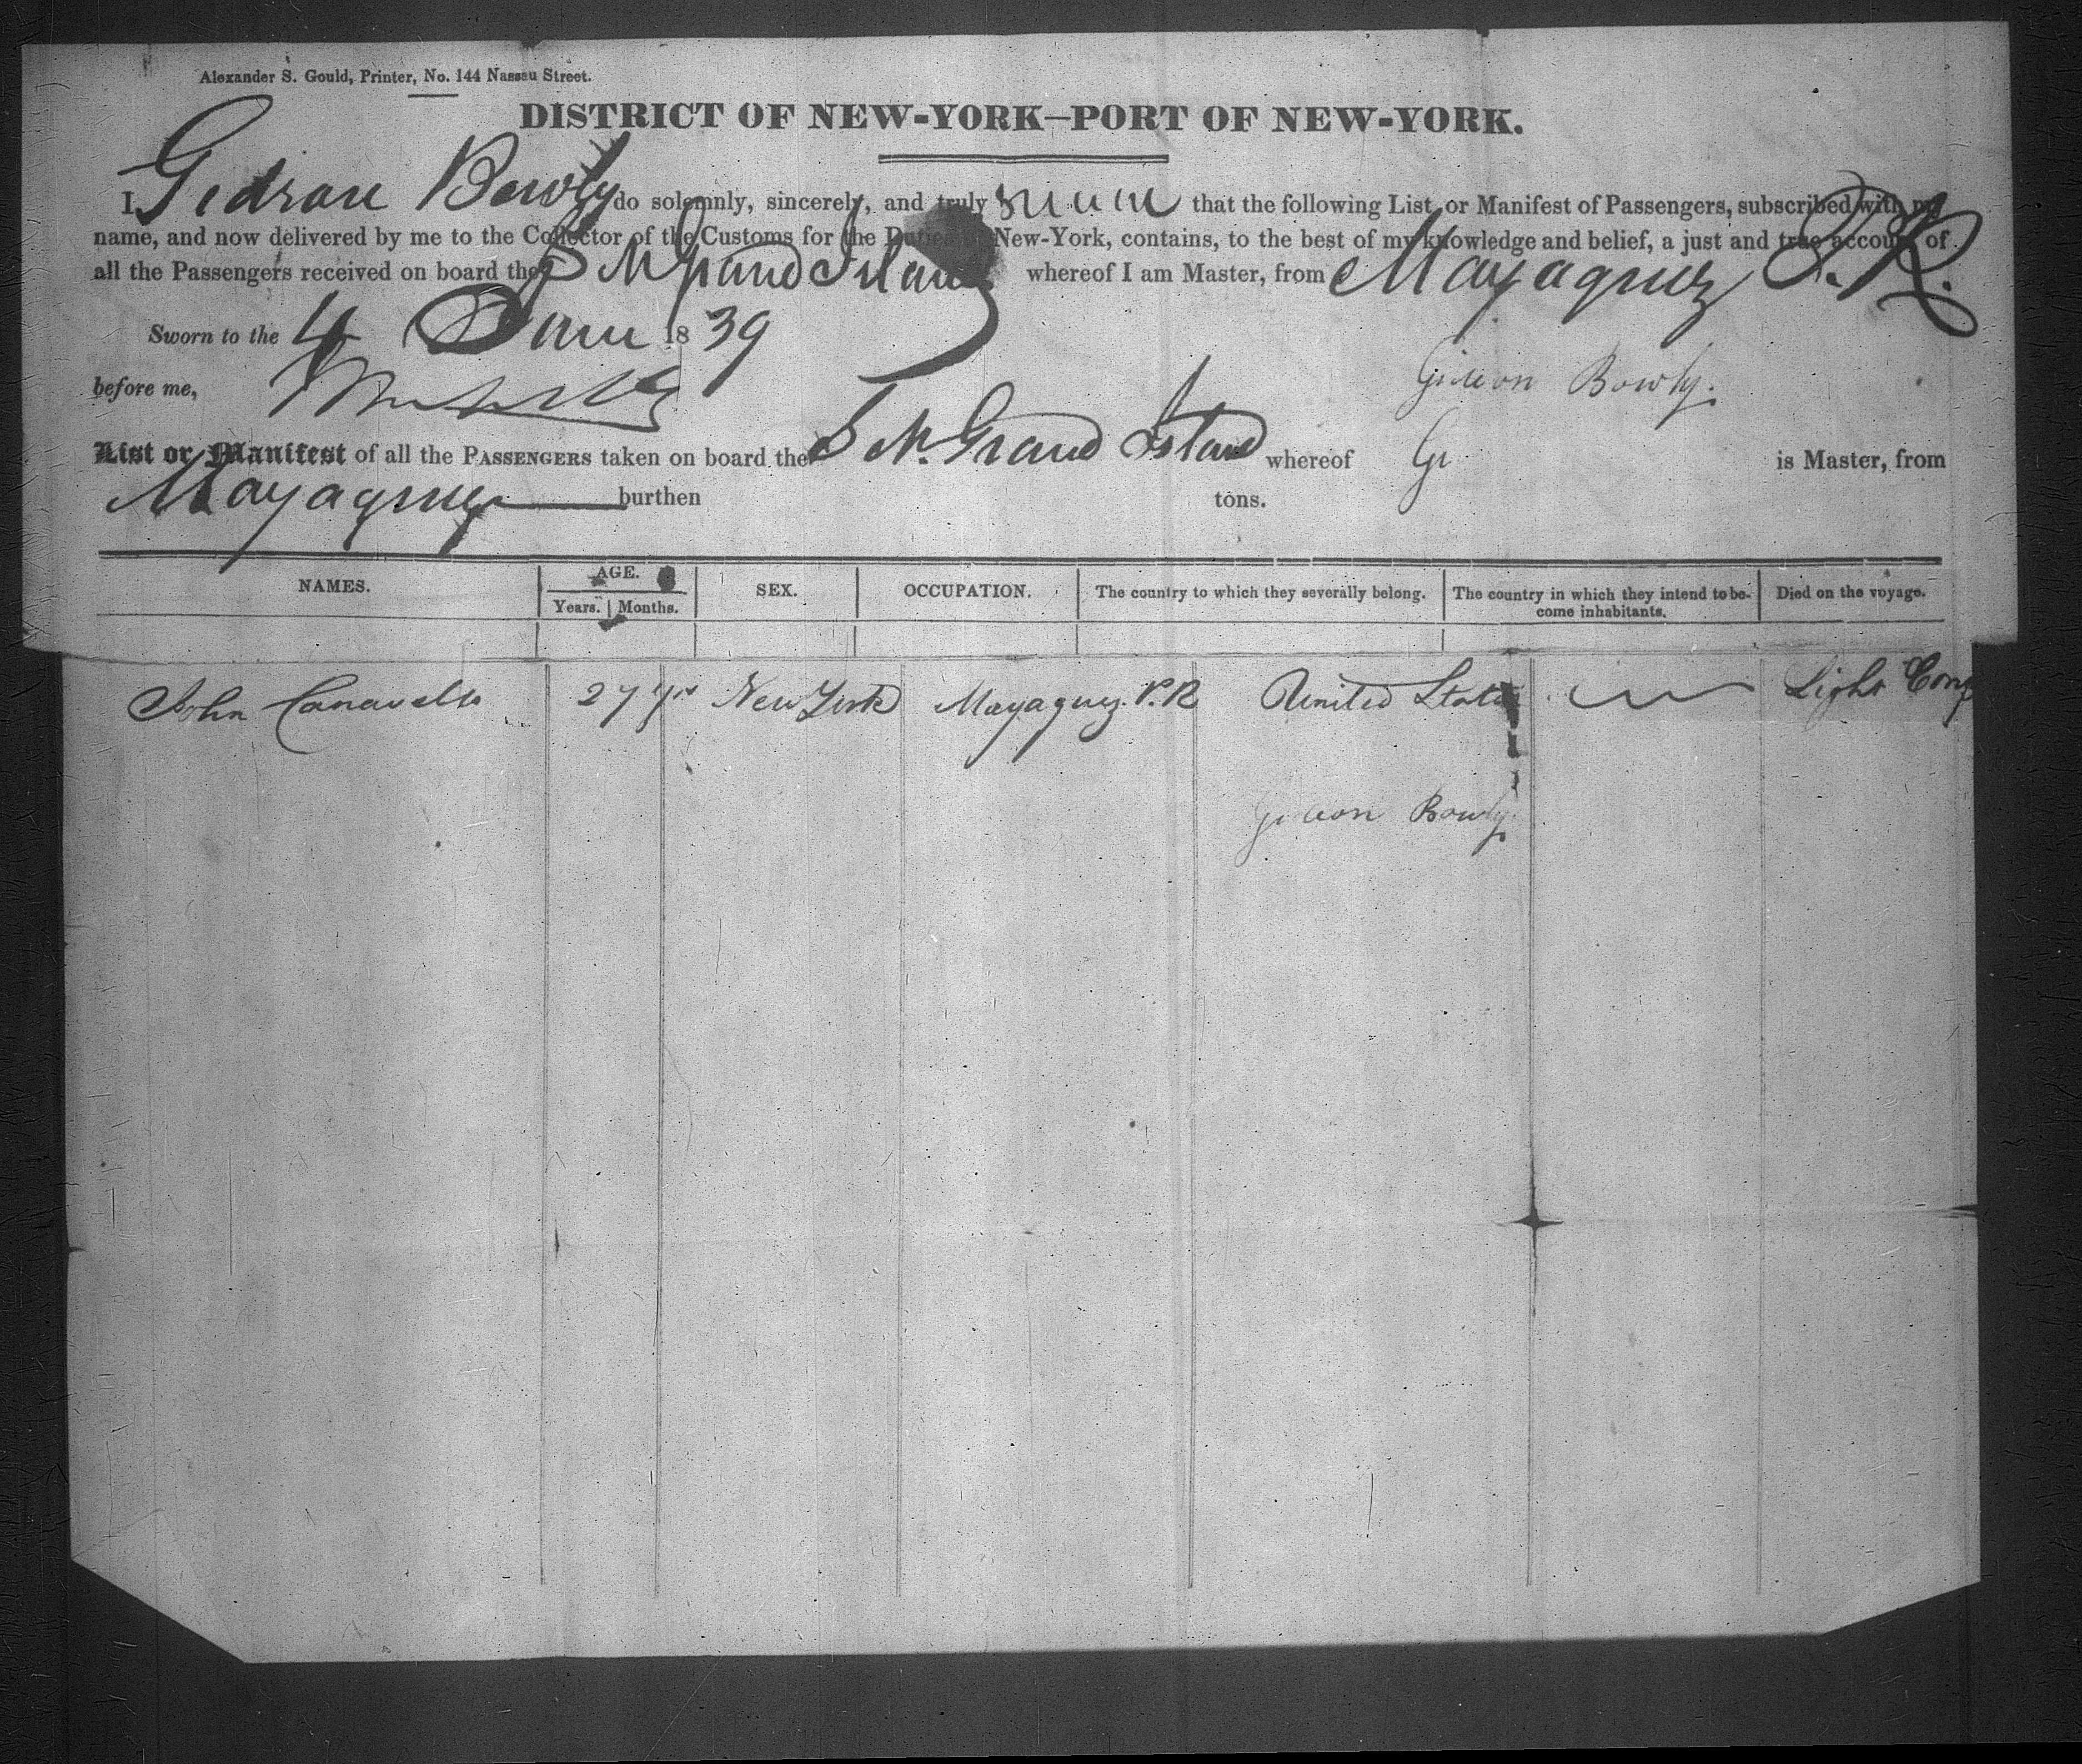 Alexander S. Gould, Printer, No. 144 Nassau Street.
DISTRICT OF NEW-YORK—PORT OF NEW-YORK.
I Gideon Bowly do solemnly, sincerely, and truly swear that the following List or Manifest of Passengers, subscribed with my
name, and now delivered by me to the Collector of the Customs for the New-York, contains, to the best of my knowledge and belief, a just and true account of
all the Passengers received on board the Grand Island whereof I am Master, from Mayaguez P.R.
Sworn to the 4 1839
before me,
Gideon Bowly.
List or Manifest of all the PASSENGERS taken on board the Grand Island whereof Gi is Master, from
Mayaguez burthen tons.
NAMES. AGE. SEX. OCCUPATION. The country to which they severally belong. The country in which they intend to be- Died on the voyage.
Years. Months. come inhabitants.
John 27 yrs New York Mayaguez P.R United States Light
Gideon Bowly.